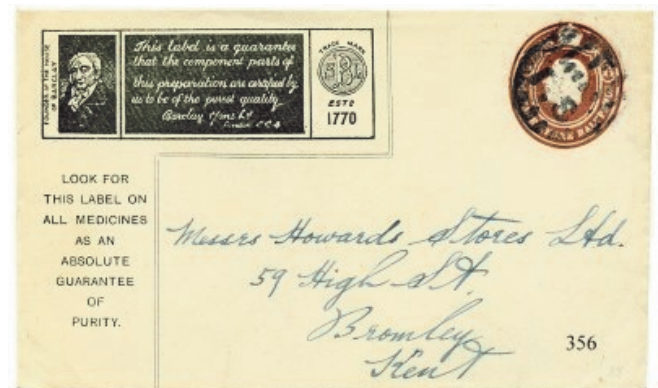 FOUNDER OF THE HOUSE
OF BARCLAY
This label is a guarantee
that the component parts of
this preparation are certified by
us to be of the purest quality
Barclay & Sons Ld
London E.C.4
TRADE MARK
ESTD
1770
LOOK FOR
THIS LABEL ON
ALL MEDICINES
AS AN
ABSOLUTE
GUARANTEE
OF
PURITY.
Messrs Howards Stores Ltd.
59 High St.
Bromley
Kent
356